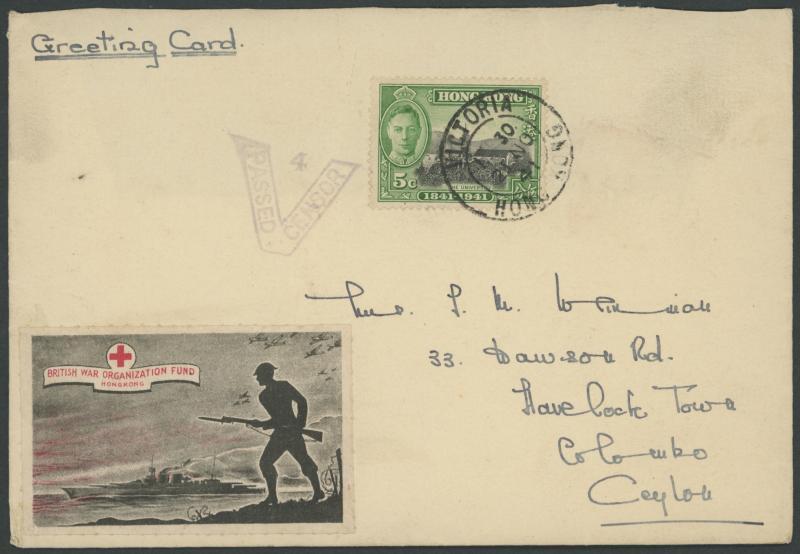 Greeting Card.
HONG KONG
香港
5c
THE UNIVERSITY
1841-1941
VICTORIA
HONG KONG
30
NO
41
4
PASSED
CENSOR
BRITISH WAR ORGANIZATION FUND
HONGKONG
Mrs. J. M.
33. Dawson Rd.
Havelock Town
Colombo
Ceylon